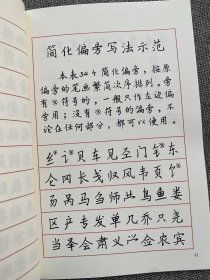 简化偏旁写法示范
本表54个简化偏旁，按原
偏旁的笔画繁简次序排列。旁
有※符号的，一般只作左边偏
旁用；没有※符号的偏旁，不
论在任何部分，都可以使用。
纟 讠 贝 车 见 门 钅 东
仑 冈 长 戋 归 风 韦 页 饣
呙 马 刍 师 鸟 鱼 娄
区 产 专 发 单 几 乔 只 尧
当 会 肃 义 佥 农 宾
41